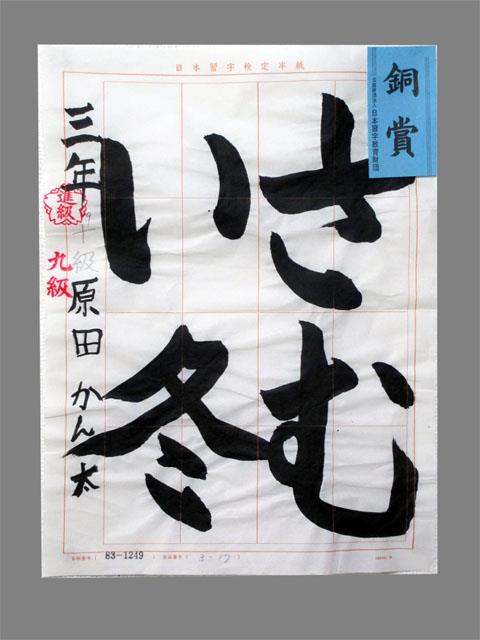 日本習字検定半紙
銅賞
公益財団法人 日本習字教育財団
さむ
い冬
三年
進級
九級
級
原田かん太
83-1249
3-17